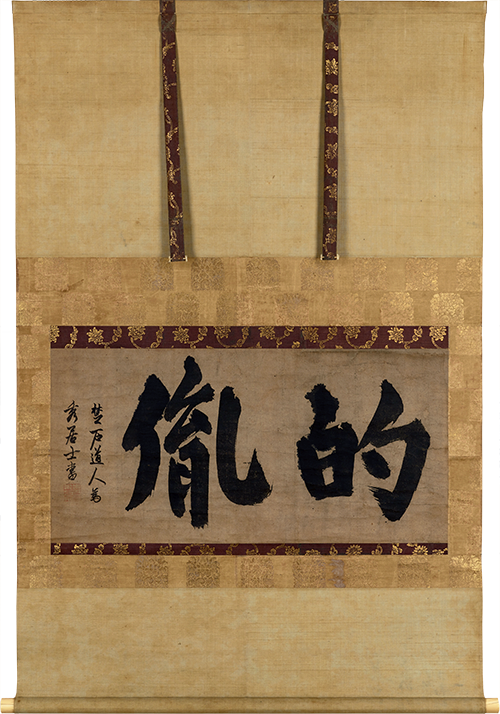 的胤
楚石道人為
秀居士書